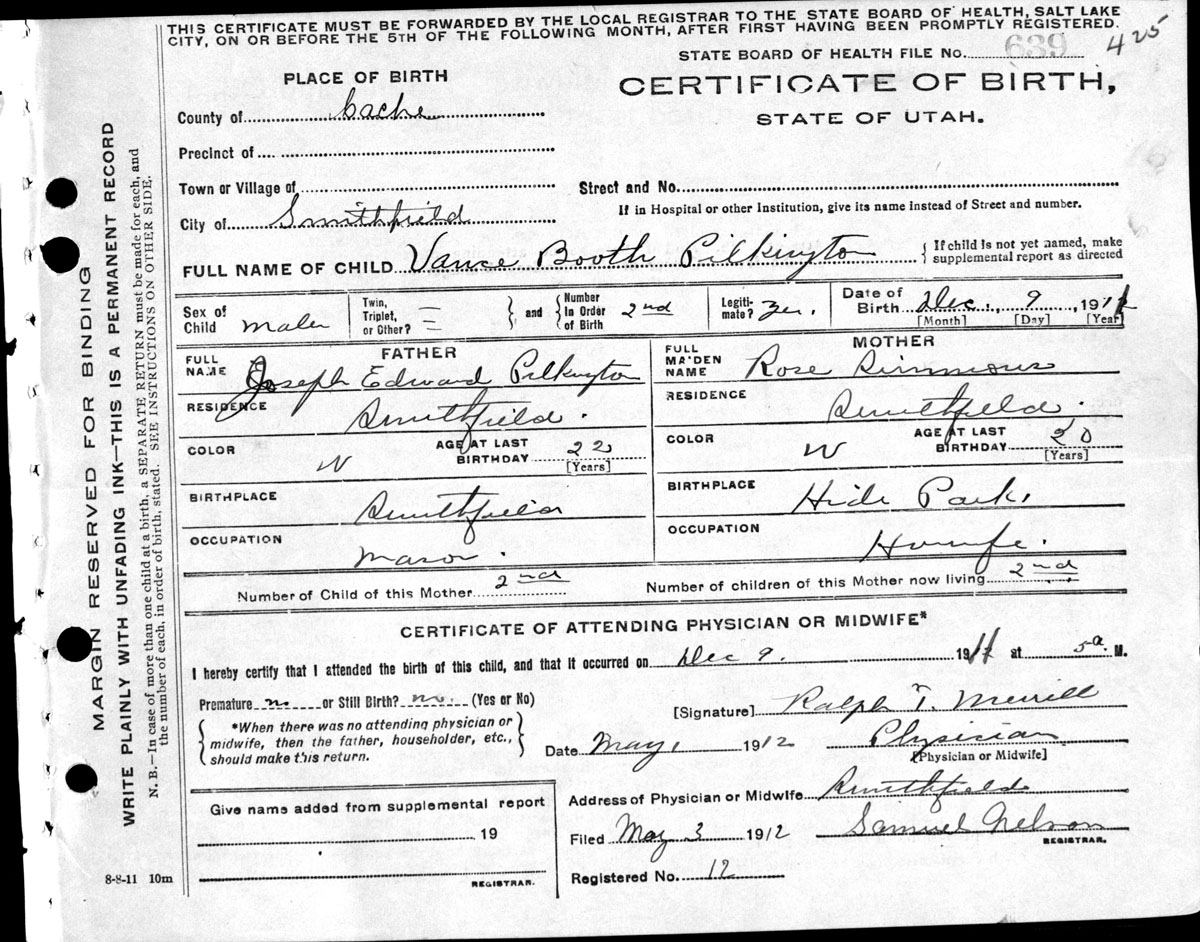 THIS CERTIFICATE MUST BE FORWARDED BY THE LOCAL REGISTRAR TO THE STATE BOARD OF HEALTH, SALT LAKE
CITY, ON OR BEFORE THE 5TH OF THE FOLLOWING MONTH, AFTER FIRST HAVING BEEN PROMPTLY REGISTERED.
STATE BOARD OF HEALTH FILE No. 639 425
PLACE OF BIRTH
CERTIFICATE OF BIRTH,
STATE OF UTAH.
County of Cache
Precinct of
Town or Village of
Street and No.
City of Smithfield
If in Hospital or other Institution, give its name instead of Street and number.
FULL NAME OF CHILD Vance Booth Pilkington
{If child is not yet named, make
supplemental report as directed
Sex of Child male
Twin, Triplet, or Other? =
} and { Number In Order of Birth 2nd
Legiti-mate?
Date of Birth Dec. 9, 1911
[Month] [Day] [Year]
FATHER
FULL NAME Joseph Edward Pilkington
RESIDENCE Smithfield.
COLOR W
AGE AT LAST BIRTHDAY 22
[Years]
BIRTHPLACE Smithfield
OCCUPATION Mason.
MOTHER
FULL MAIDEN NAME Rose Simmons
RESIDENCE Smithfield.
COLOR W
AGE AT LAST BIRTHDAY 20
[Years]
BIRTHPLACE Hide Park.
OCCUPATION
Number of Child of this Mother 2nd
Number of children of this Mother now living 2nd
CERTIFICATE OF ATTENDING PHYSICIAN OR MIDWIFE*
I hereby certify that I attended the birth of this child, and that it occurred on Dec 9. 1911 at 5a. M.
Premature no or Still Birth? no. (Yes or No)
[Signature] Ralph T. Merrill
{*When there was no attending physician or
midwife, then the father, householder, etc.,
should make this return.}
Date May, 1912
Physician
[Physician or Midwife]
Give name added from supplemental report
19
REGISTRAR.
Address of Physician or Midwife Smithfield
Filed May 3 1912 Samuel Nelson
REGISTRAR.
Registered No. 12
8-8-11 10m
MARGIN RESERVED FOR BINDING
WRITE PLAINLY WITH UNFADING INK—THIS IS A PERMANENT RECORD
N. B.—In case of more than one child at a birth, a SEPARATE RETURN must be made for each, and
the number of each, in order of birth, stated. SEE INSTRUCTIONS ON OTHER SIDE.